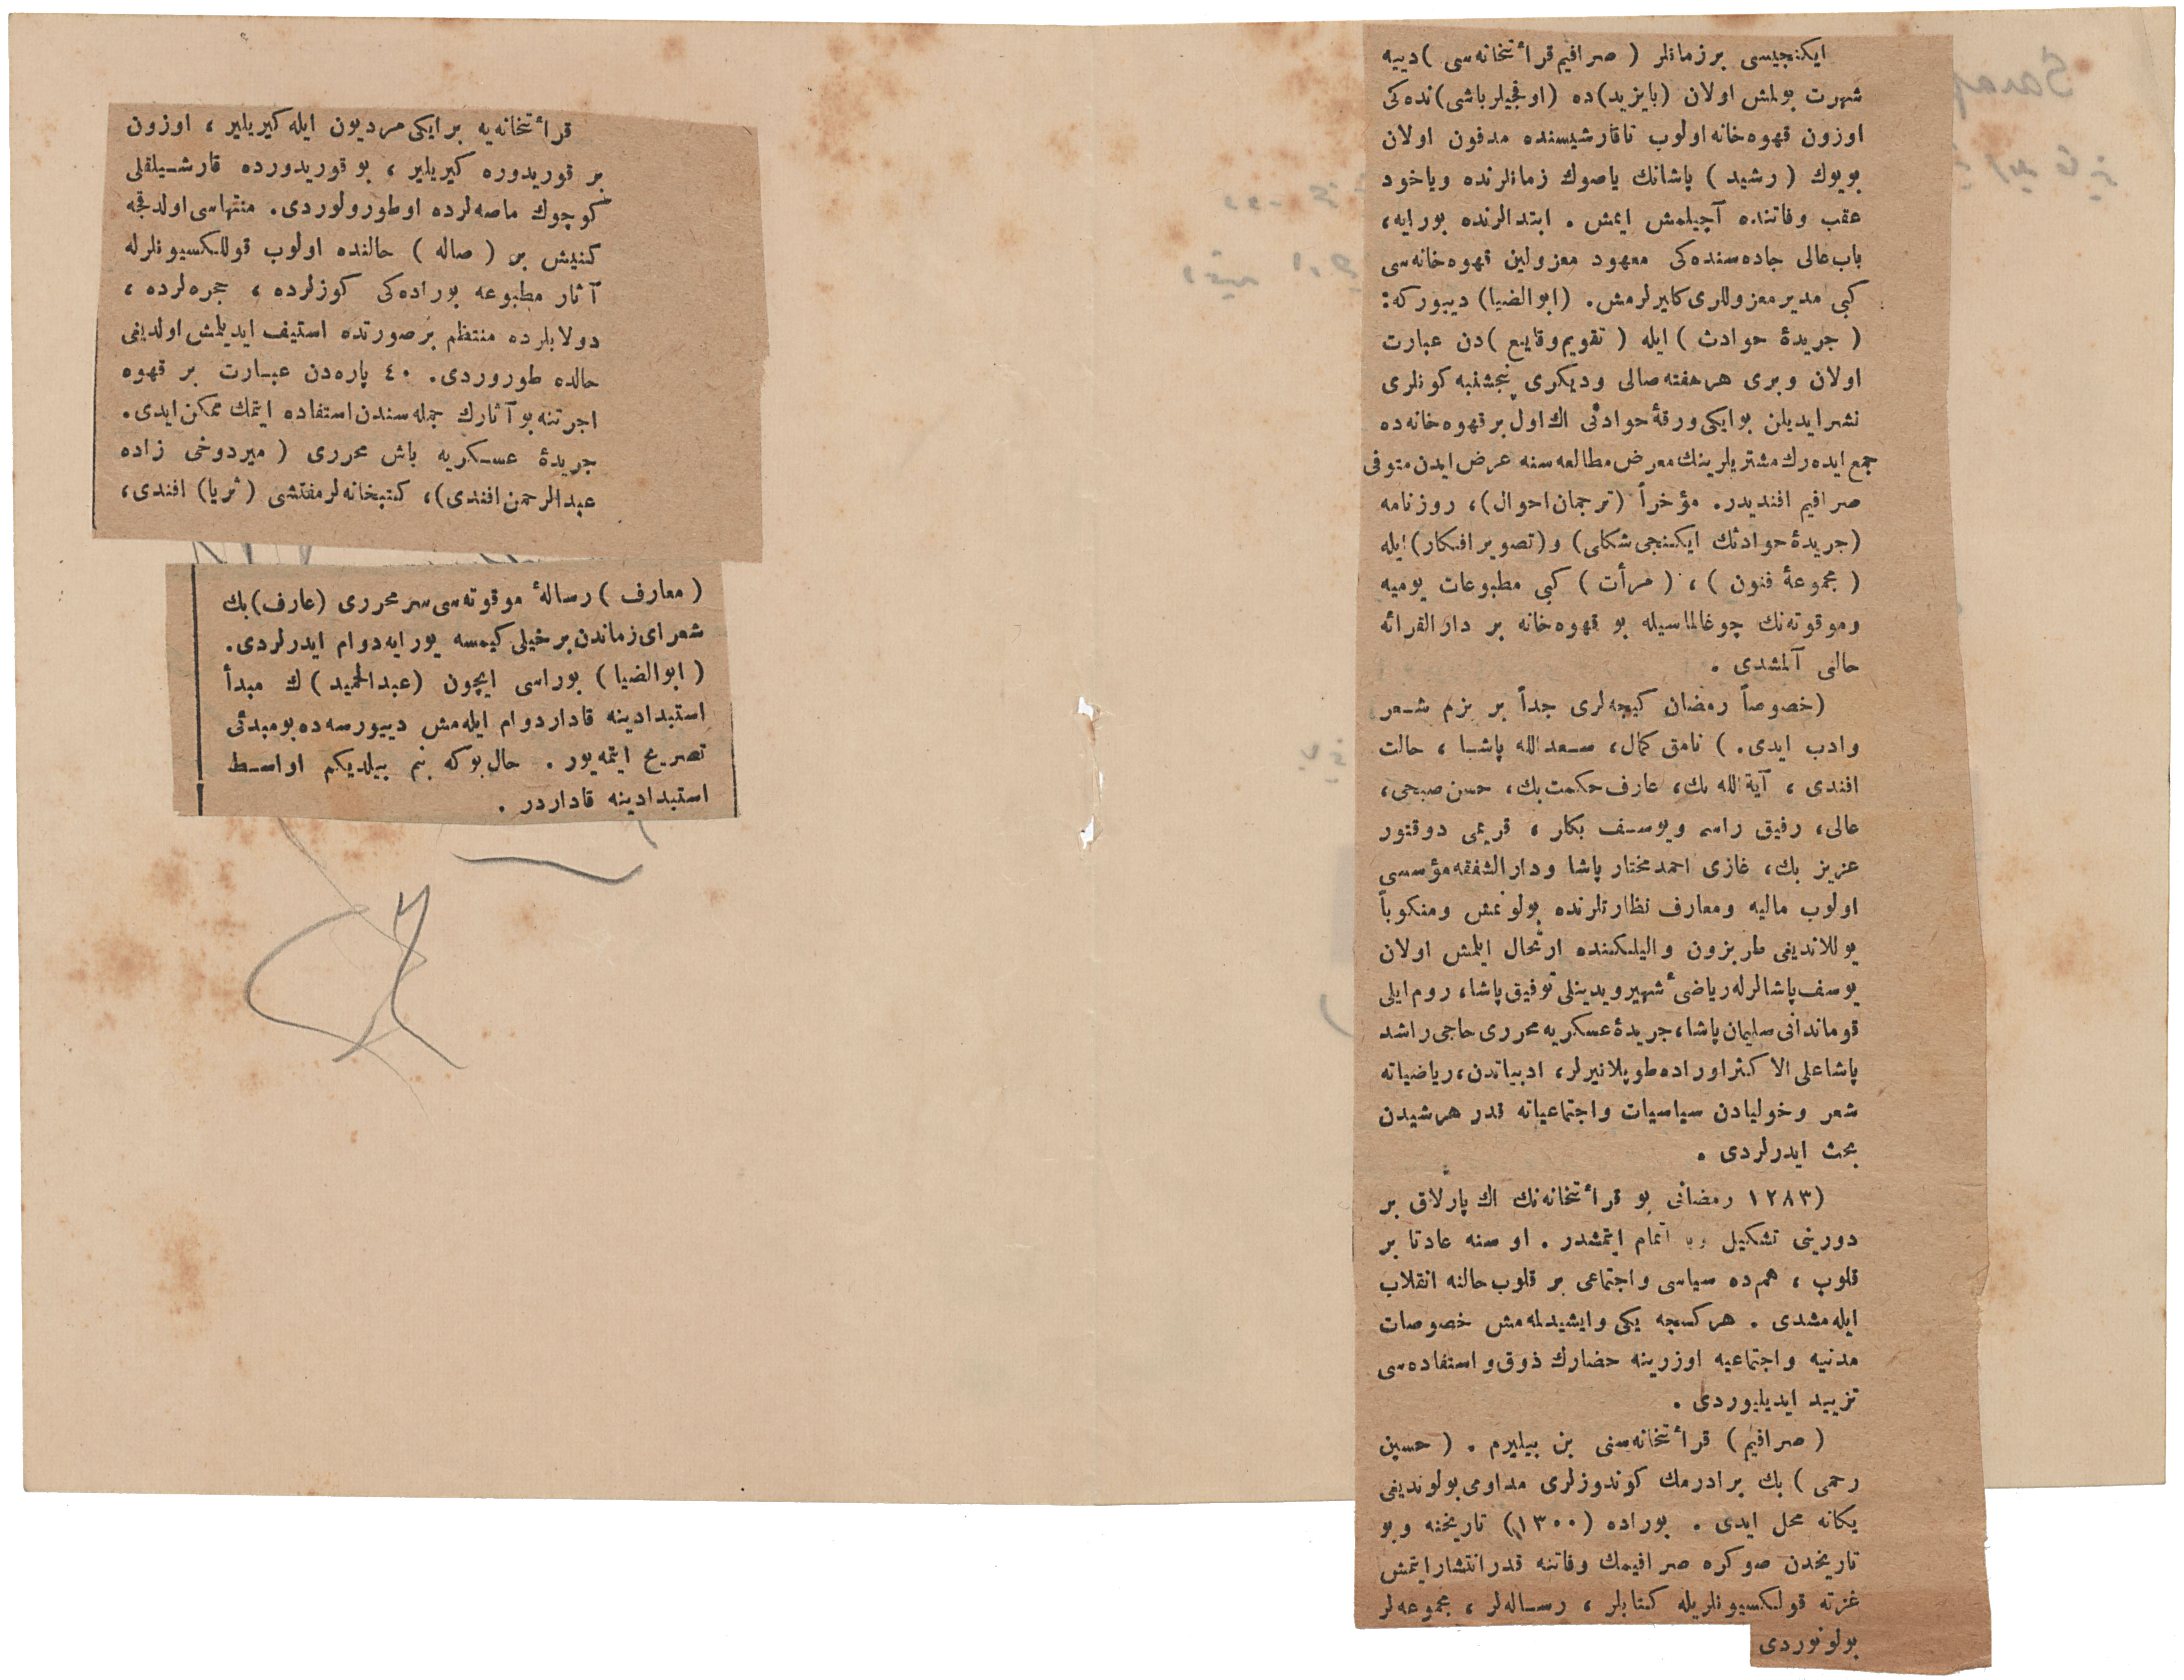 ایكنجیسی برزمانلر ( صرافیم قرأتخانه‌سی ) دییه
شهرت بولمش اولان (بایزید)ده (اوقجیلرباشی)نده‌كی
اوزون قهوه‌خانه اولوب تاقارشیسنده مدفون اولان
بویوك ( رشید ) پاشانك یاصوك زمانلرنده ویاخود
عقب وفاتنده آچیلمش ایمش . ابتدالرنده بورایه،
باب‌عالی جاده‌سنده‌كی معهود معزولین قهوه‌خانه‌سی
كبی مدیر معزوللری كلیرلرمش. (ابوالضیا) دییوركه:
( جریدۀ حوادث ) ایله ( تقویم وقایع )دن عبارت
اولان وبری هر هفته صالی ودیكری پنجشنبه كونلری
نشر ایدیلن بو ایكی ورقۀ حوادثی اك اول بر قهوه‌خانه‌ده
جمع ایده‌رك مشتریلرینك معرض مطالعه‌سنه عرض ایدن متوفی
صرافیم افندیدر. مؤخراً (ترجمان احوال)، روزنامه
(جریدۀ حوادثك ایكنجی شكلی) و (تصویر افكار) ایله
( مجموعۀ فنون ) ، ( مرأت ) كبی مطبوعات یومیه
وموقوته‌نك چوغالماسیله بو قهوه‌خانه بر دار القرائه
حالی آلمشدی .
(خصوصاً رمضان كیجه‌لری جداً بر بزم شعر
وادب ایدی. ) نامق كمال، سعدالله پاشا ، حالت
افندی ، آیة الله بك، عارف حكمت بك، حسن صبحی،
عالی، رفیق راسم ویوسف بكلر ، قریمی دوقتور
عزیز بك، غازی احمد مختار پاشا ودار الشفقه مؤسسی
اولوب مالیه ومعارف نظارتلرنده بولونمش ومنكوباً
یوللاندیغی طربزون والیلكنده ارتحال ایلمش اولان
یوسف پاشالرله ریاضیٔ شهیر ویدینلی توفیق پاشا، روم ایلی
قوماندانی سلیمان پاشا، جریدۀ عسكریه محرری حاجی راشد
پاشا علی الاكثر اوراده طوپلانیرلر، ادبیاتدن، ریاضیاته
شعر وخولیادن سیاسیات واجتماعیاته قدر هر شیدن
بحث ایدرلردی .
(۱۲۸۳ رمضانی بو قرأتخانه‌نك اك پارلاق بر
دورینی تشكیل اتمام ایتمشدر . او سنه عادتا بر
قلوب ، هم‌ده سیاسی واجتماعی بر قلوب حالنه انقلاب
ایله‌مشدی . هر كیجه یكی وایشیدلمه‌مش خصوصات
مدنیه واجتماعیه اوزرینه حضارك ذوق واستفاده‌سی
تزیید ایدیلیوردی .
( صرافیم ) قرأتخانه‌سنی بن بیلیرم . ( حسین
رحمی ) بك برادرمك كوندوزلری مداومی بولوندیغی
یكانه محل ایدی . بوراده (۱۳۰۰) تاریخنه وبو
تاریخدن صوكره صرافیمك وفاتنه قدر انتشار ایتمش
غزته قوللكسیونلریله كتابلر ، رساله‌لر ، مجموعه‌لر
بولونوردی
قرأتخانه‌یه بر ایكی مردیون ایله كیریلیر ، اوزون
بر قوریدوره كیریلیر ، بو قوریدورده قارشیلقلی
كوچوك ماصه‌لرده اوطورولوردی. منتهاسی اولدقجه
كنیش بر ( صاله ) حالنده اولوب قوللكسیونلرله
آثار مطبوعه بوراده‌كی كوزلرده ، حجره‌لرده ،
دولابلرده منتظم بر صورتده استیف ایدیلمش اولدیغی
حالده طوروردی. ٤۰ پاره‌دن عبارت بر قهوه
اجرتنه بو آثارك جمله‌سندن استفاده ایتمك ممكن ایدی.
جریدۀ عسكریه باش محرری ( میردوخی زاده
عبدالرحمن افندی)، كتبخانه‌لر مفتشی (ثریا) افندی،
( معارف ) رسالۀ موقوته‌سی سر محرری (عارف) بك
شعرای زماندن بر خیلی كیمسه بورایه دوام ایدرلردی.
( ابوالضیا ) بوراسی ایچون (عبدالحمید) ك مبدأ
استبدادینه قادار دوام ایله‌مش دییورسه‌ده بو مبدئی
تصریح ایتمه‌یور . حال بوكه بنم بیلدیكم اواسط
استبدادینه قاداردر .